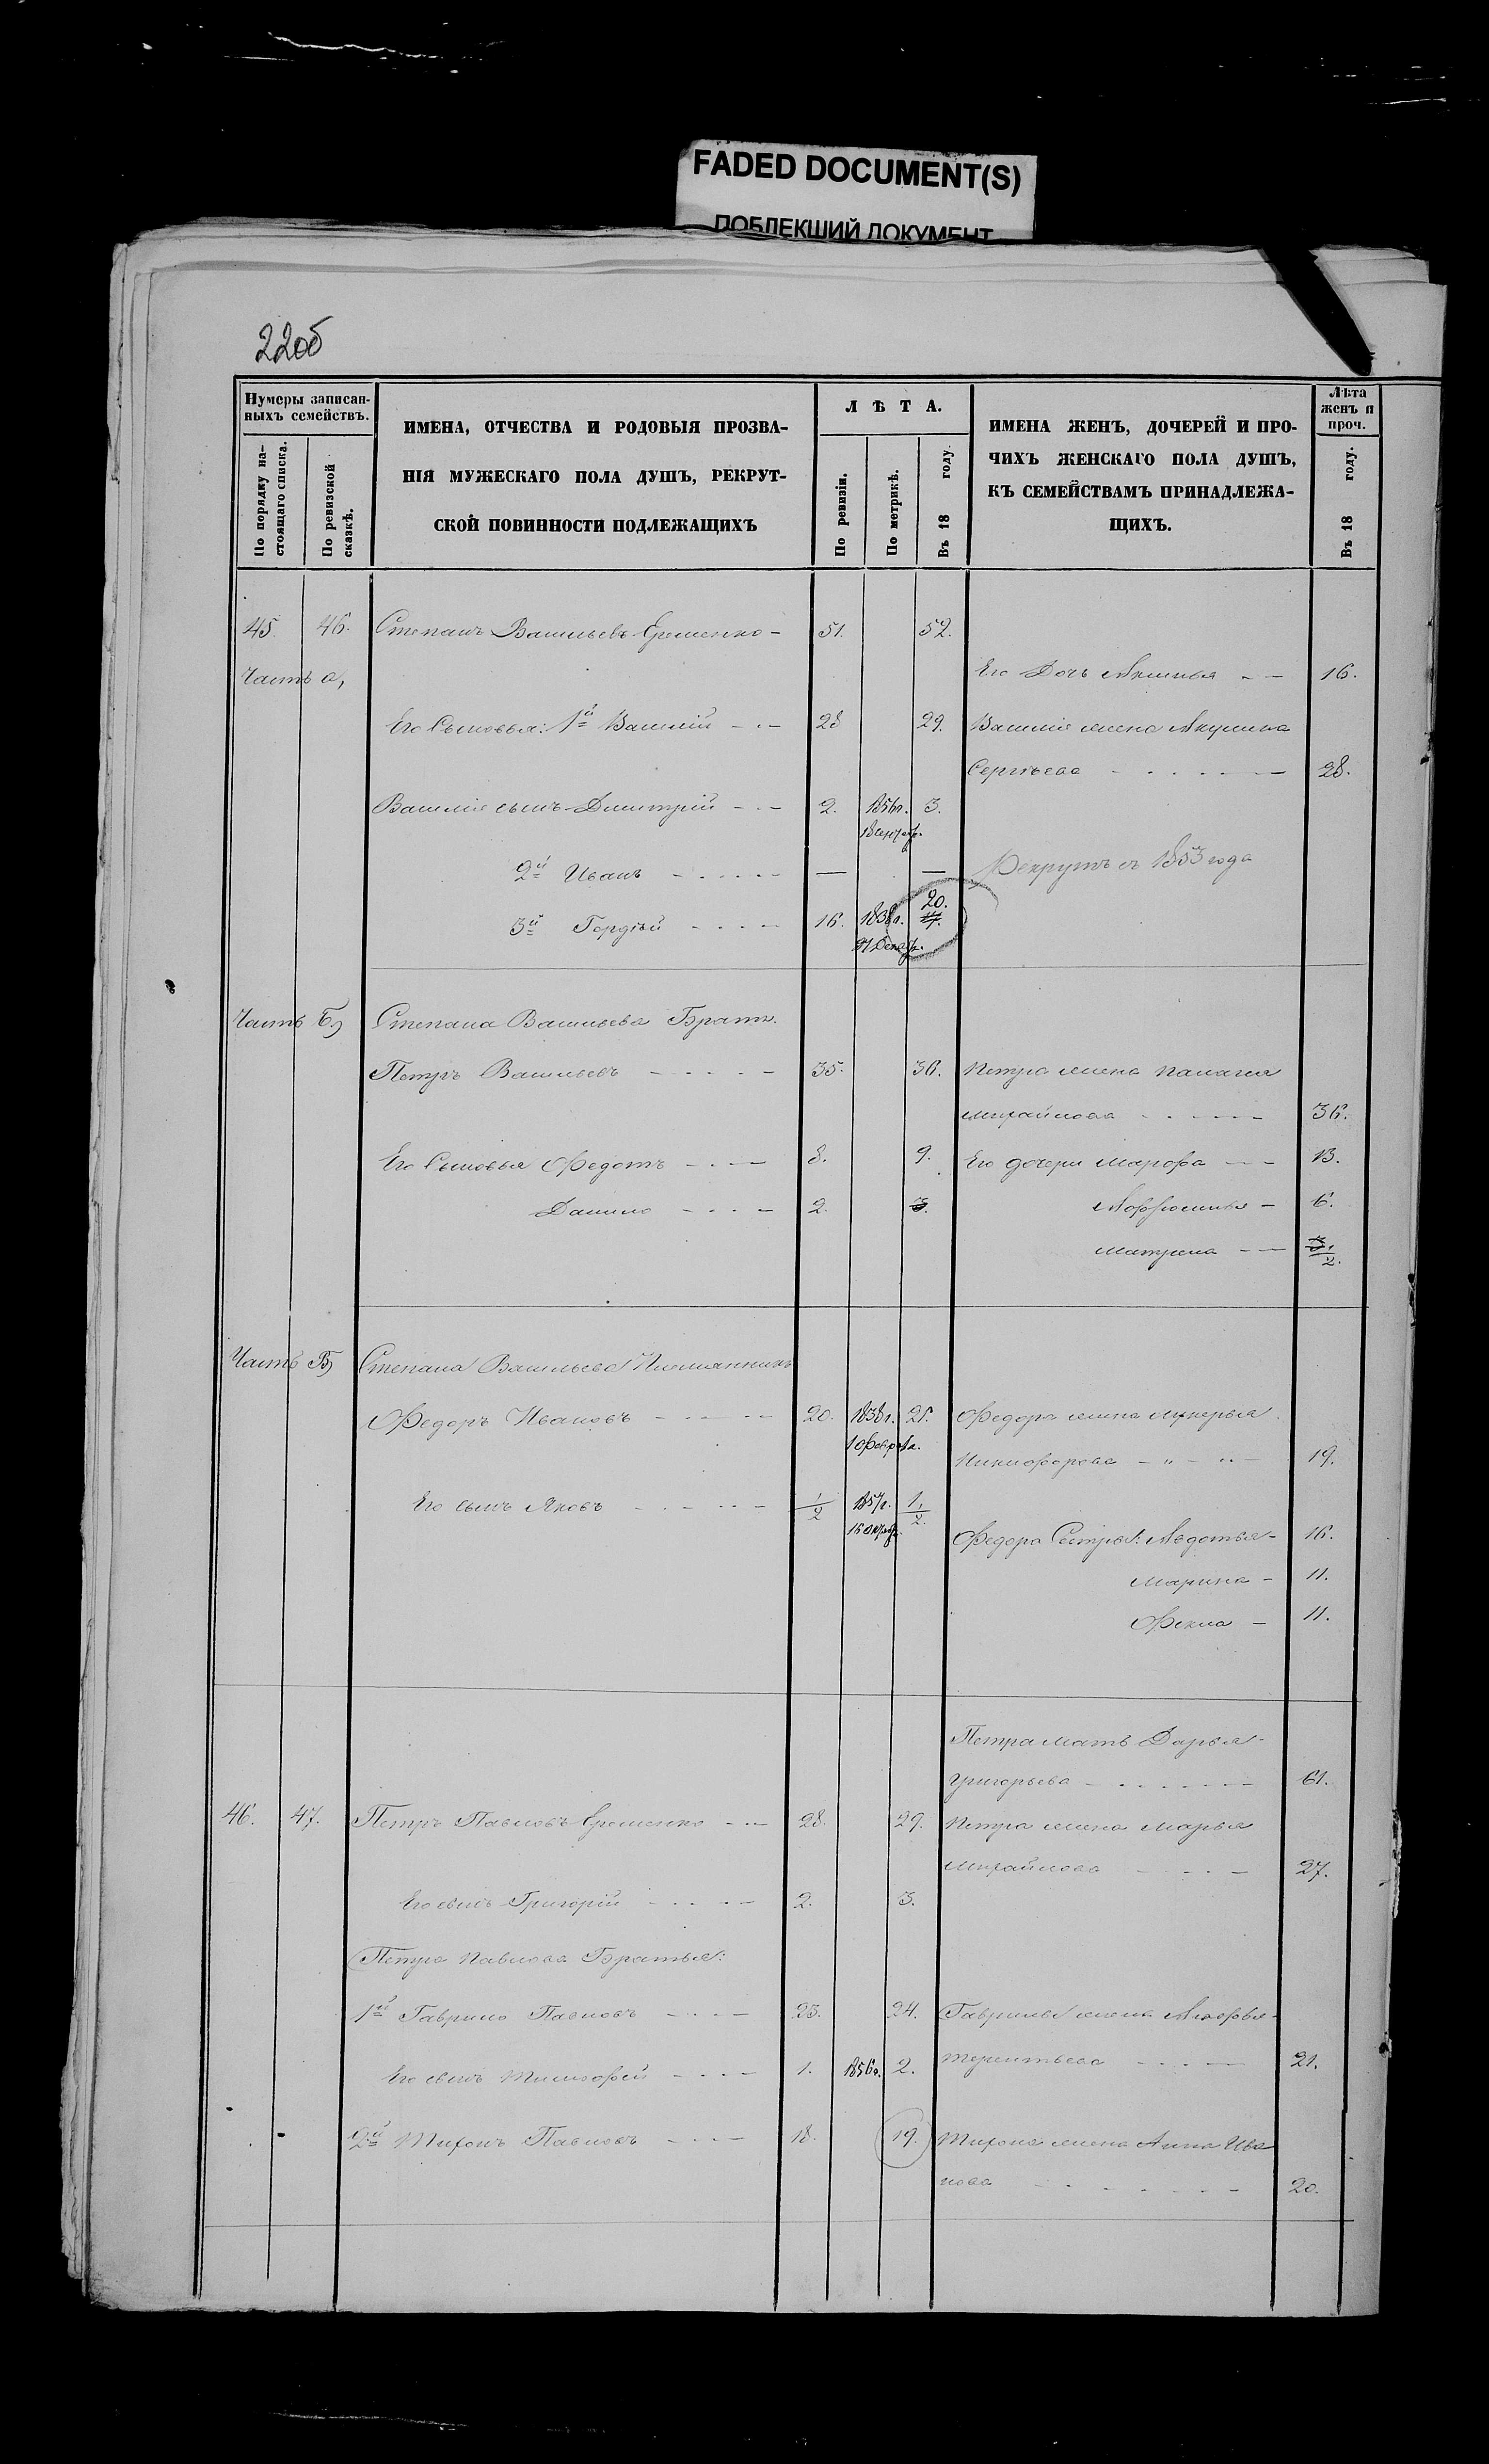 FADED DOCUMENT(S)
ПОБЛЕКШИЙ ДОКУМЕНТ
22об
Нумеры записан-
ныхъ семействъ.
По порядку на-
стоящаго списка.
По ревизской
сказкѣ.
ИМЕНА, ОТЧЕСТВА И РОДОВЫЯ ПРОЗВА-
НІЯ МУЖЕСКАГО ПОЛА ДУШЪ, РЕКРУТ-
СКОЙ ПОВИННОСТИ ПОДЛЕЖАЩИХЪ
ЛѢТА.
По ревизіи.
По метрикѣ.
Въ 18 году.
ИМЕНА ЖЕНЪ, ДОЧЕРЕЙ И ПРО-
ЧИХЪ ЖЕНСКАГО ПОЛА ДУШЪ,
КЪ СЕМЕЙСТВАМЪ ПРИНАДЛЕЖА-
ЩИХЪ.
Лѣта
женъ п
проч.
Въ 18 году.
45. 46. Степанъ Васильевъ Еременко - 51. 52.
Часть а, Его Дочь Аксинья - - 16.
Его Сыновья: 1й Василій - - - 28 29. Василія жена Акулина
Сергѣева - - - - 28.
Василія сынъ Дмитрій - - - 2. 1856г. 3.
18 сентяб.
2й Иванъ - - - - - — — Рекрутъ съ 1853 года
3й Гордѣй - - - - 16. 1838г. 20.
Декаб.
Часть Б) Степана Васильева Братъ.
Петръ Васильевъ - - - - - 35. 36. Петра жена Палагея
Михайлова - - - - 36.
Его Сыновья Федотъ - - - 8. 9. Его дочери Марфа - - 13.
Данило - - - - 2. 3. Афросинья - 6.
Матрена - - 1/2.
Часть В) Степана Васильева Племянникъ
Федоръ Ивановъ - - - - - 20. 1838г. 21. Федора жена Лукерья
10 Февраля. Никифорова - „ - „ - 19.
Его сынъ Яковъ - - - - - 1/2 1857г. 1 1/2.
16 Октяб. Федора Сестры: Авдотья - 16.
Марина - 11.
Фекла - 11.
Петра мать Дарья -
Григорьева - - - - - 61.
46. 47. Петръ Павловъ Еременко - - - 28. 29. Петра жена Марья
Михайлова - - - - 27.
Его сынъ Григорій - - - - 2. 3.
Петра Павлова Братья:
1й Гаврило Павловъ - - - - 23. 24. Гаврилы жена
Терентьева - - - - 21.
Его сынъ Тимофей - - - - 1. 1856г. 2.
2й Тихонъ Павловъ - - - - 18. 19. Тихона жена Анна Ива
нова - - - - - - 20.